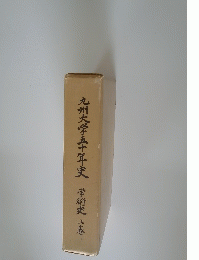 九州大学五十年史 学術史 上巻